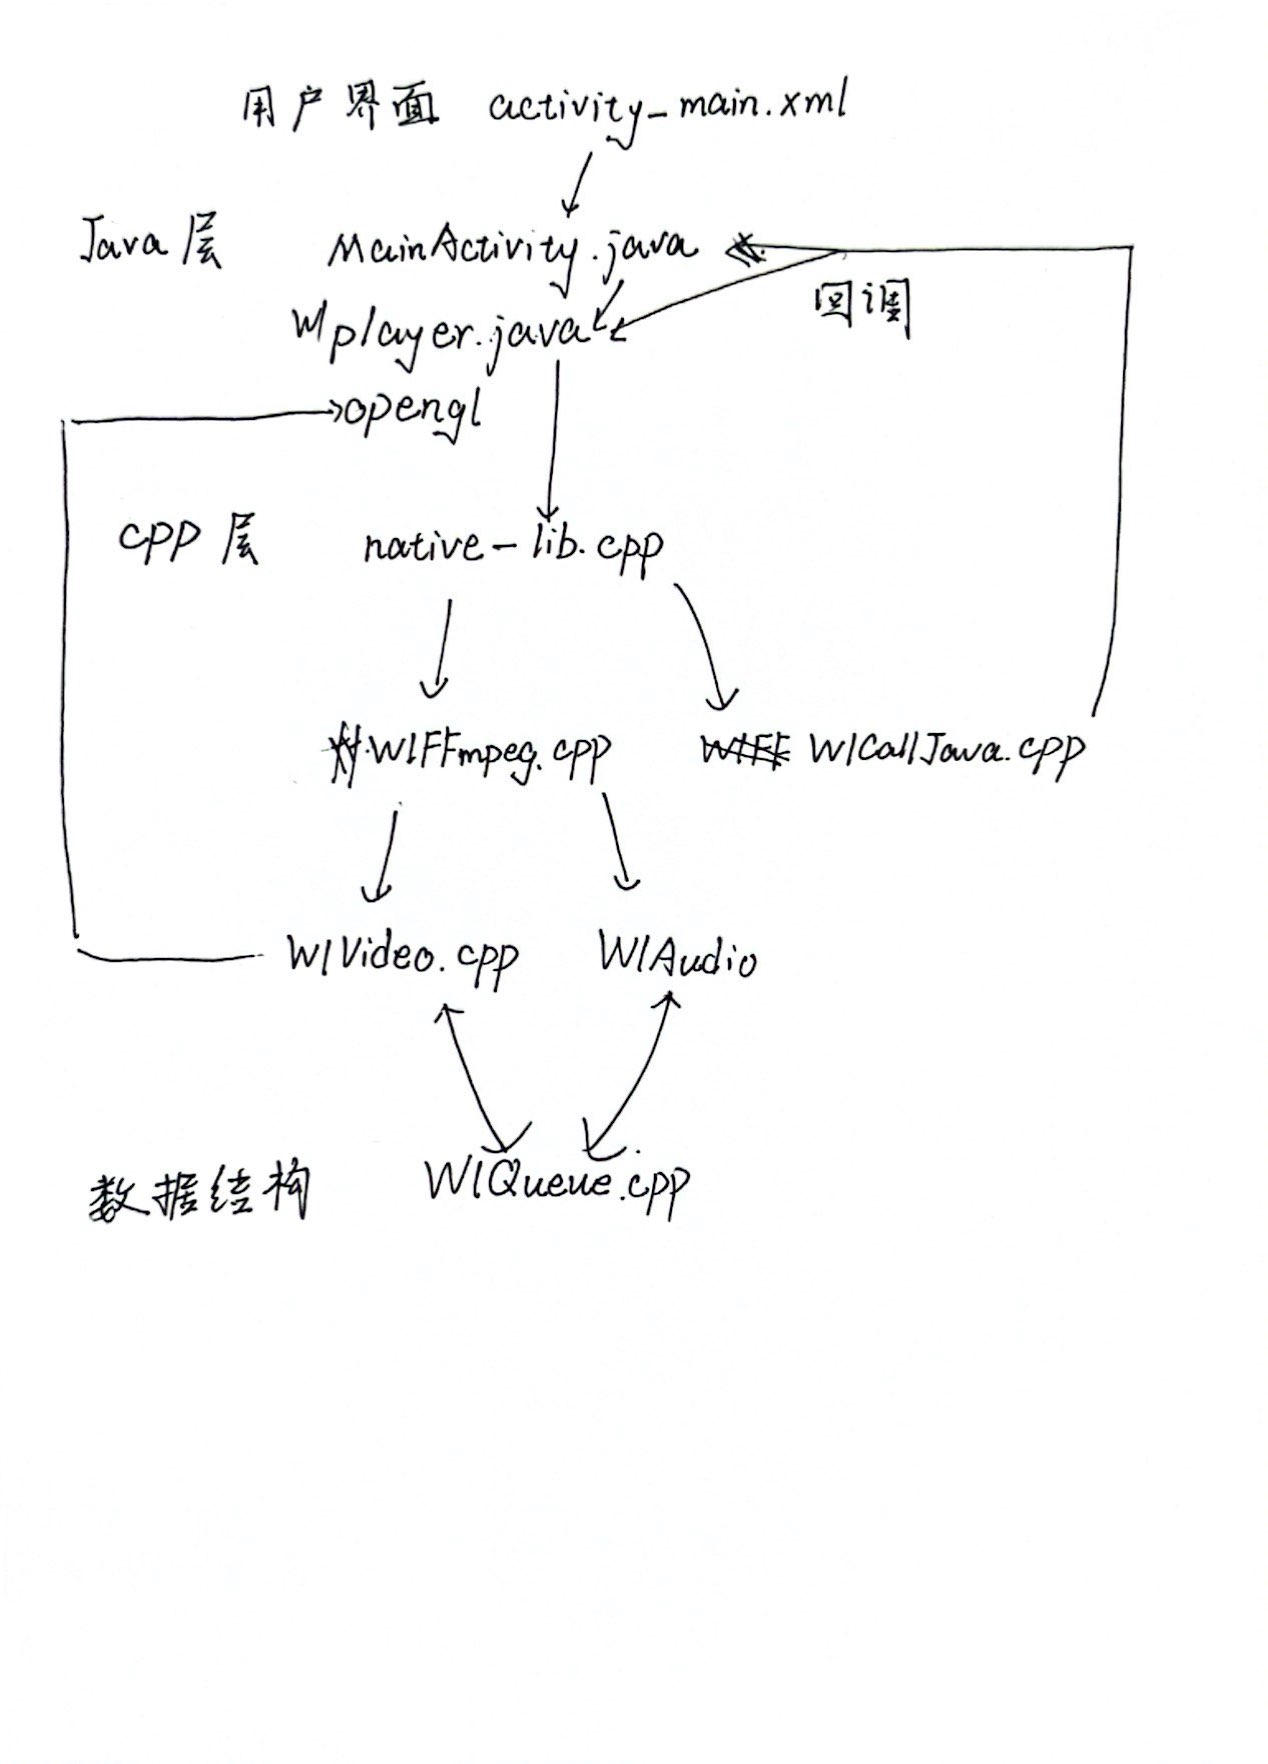 用户界面 activity_main.xml
Java层 MainActivity.java
回调
Wlplayer.java
opengl
cpp层 native-lib.cpp
WlFFmpeg.cpp WlCallJava.cpp
WlVideo.cpp WlAudio
数据结构 WlQueue.cpp